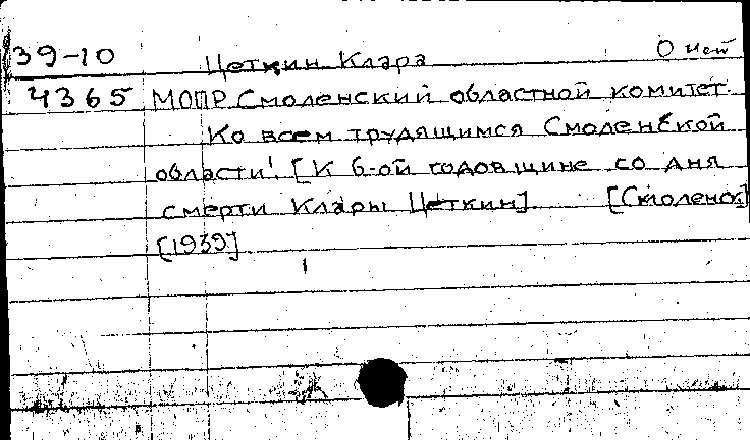 39-10 Цеткин Клара О нем
4365 МОПР. Смоленский областной комитет
Ко всем трудящимся Смоленской
области! [К 6-ой годовщине со дня
смерти Клары Цеткин]. [Смоленск]
[1939]